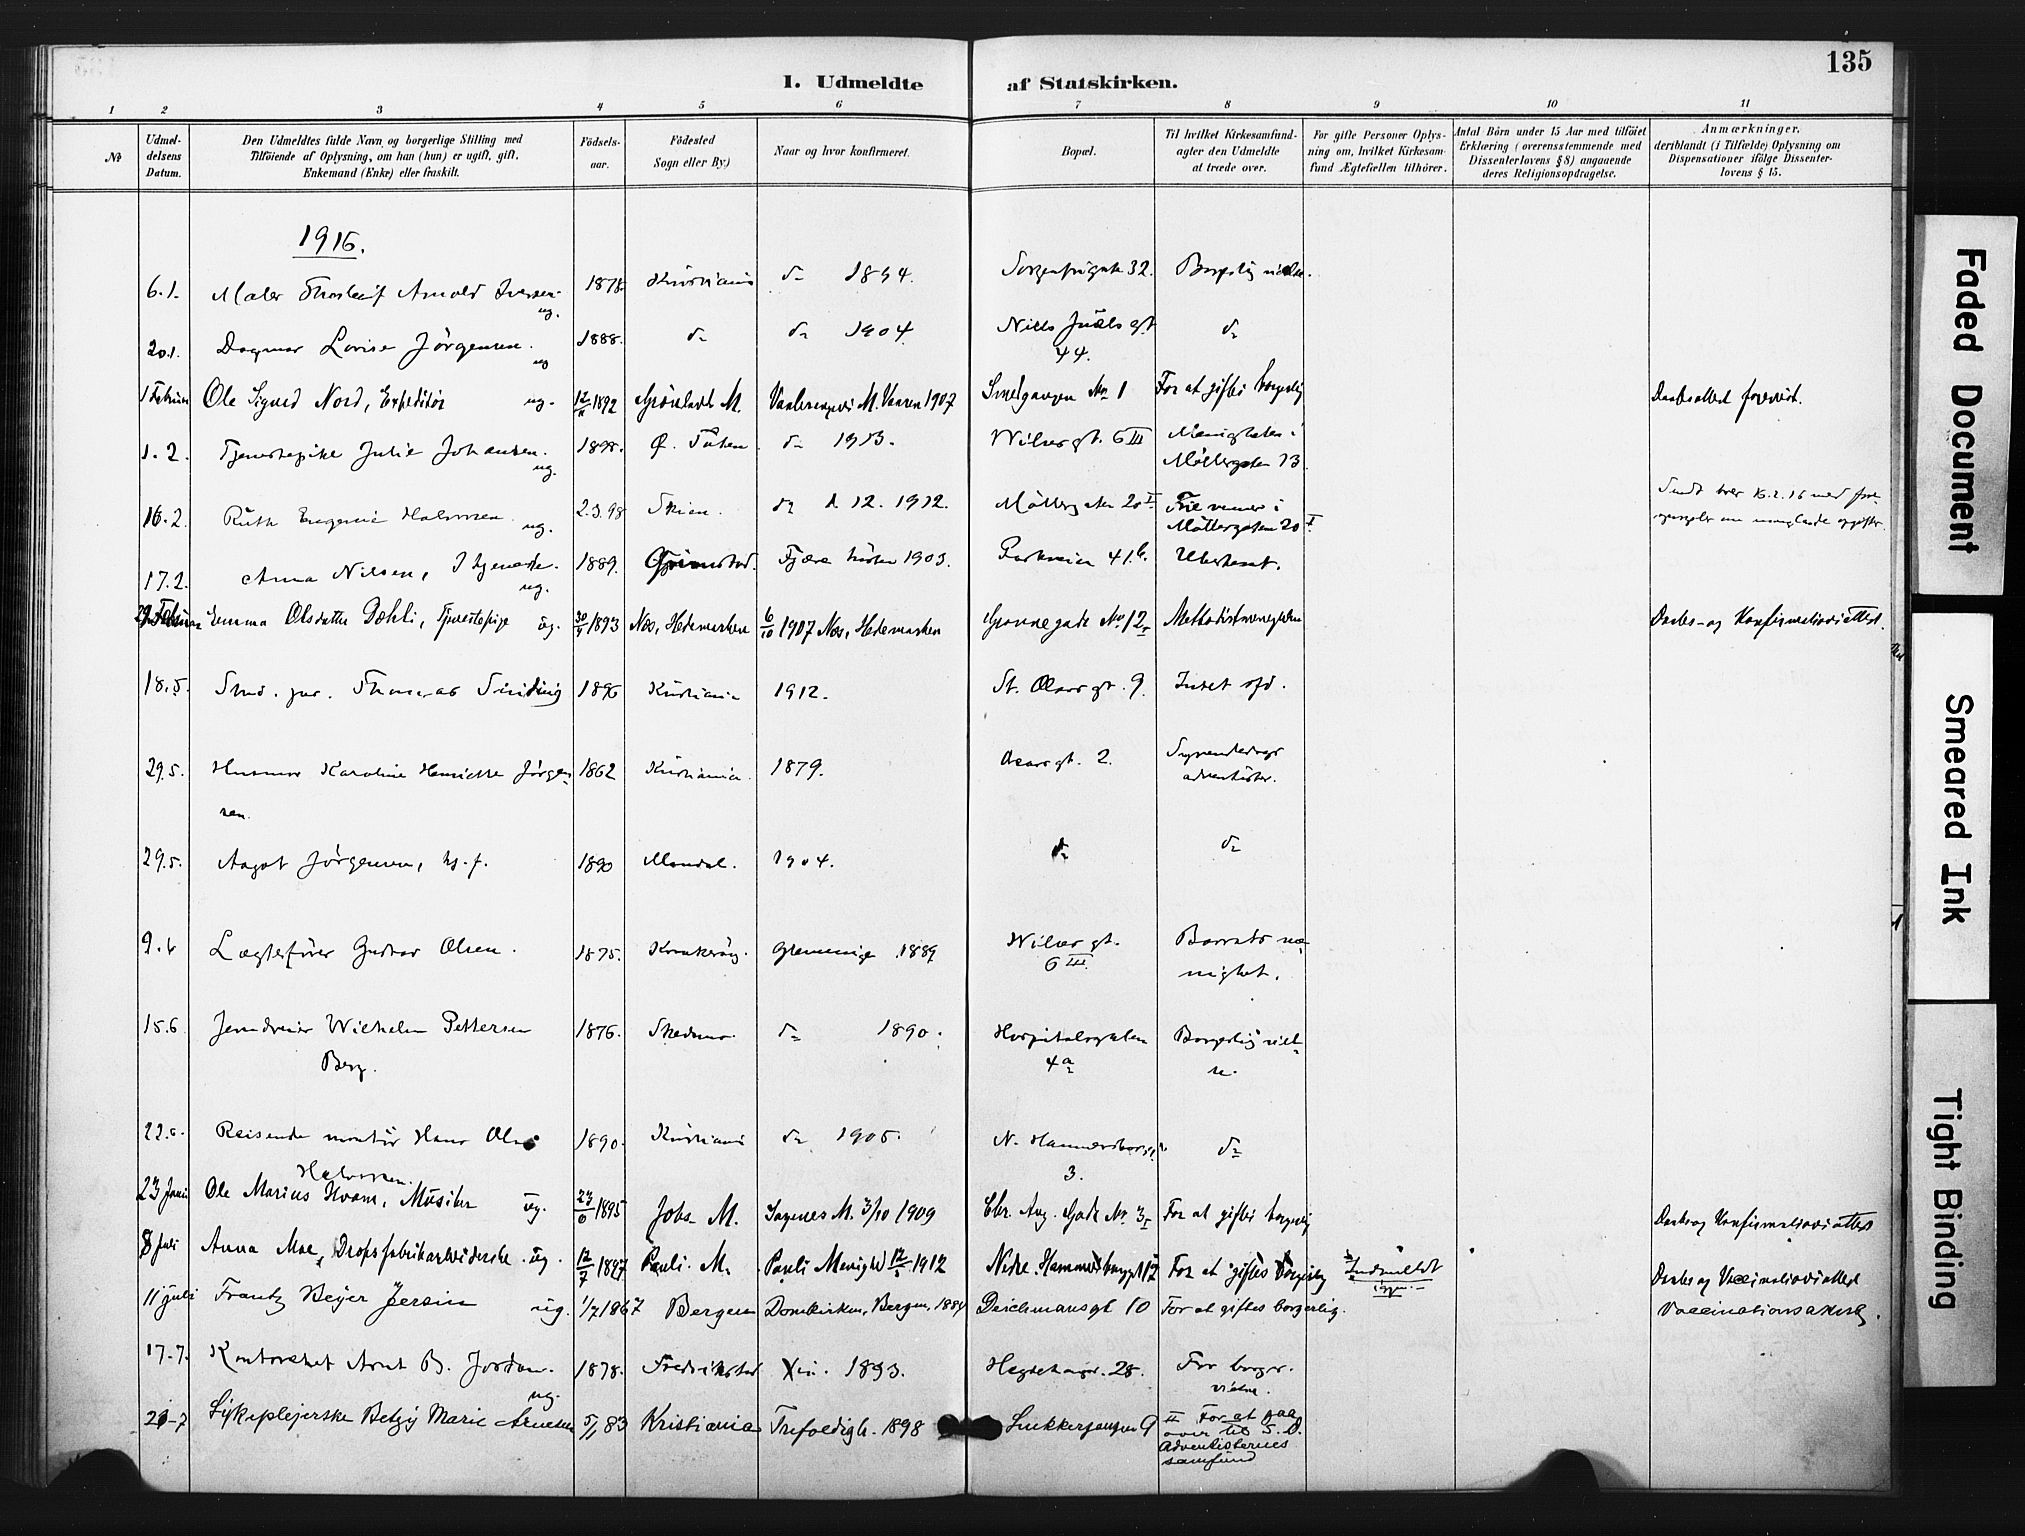 135
I. Udmeldte af Statskirken.
1 2 3 4 5 6 7 8 9 10 11
No
Udmeldelsens Datum.
Den Udmeldtes fulde Navn og borgerlige Stilling med
Tilföiende af Oplysning, om han (hun) er ugift, gift,
Enkemand (Enke) eller fraskilt.
Födselsaar.
Födested
Sogn eller By)
Naar og hvor konfirmeret.
Bopæl.
Til hvilket Kirkesamfund agter den Udmeldte at træde over.
For gifte Personer Oplysning om, hvilket Kirkesamfund Ægtefællen tilhører.
Antal Börn under 15 Aar med tilföiet
Erklæring (overensstemmende med
Dissenterlovens § 8) angaaende
deres Religionsopdragelse.
Anmærkninger.
deriblandt (i Tilfælde) Oplysning om
Dispensationer ifölge Dissenterlovens § 15.
1916.
6.1. Maler Thorleif Arnold Iversen ug. 1878 Kristiania do 1894. Sorgenfrigate 32. Borgerlig vielse.
20.1. Dagmar Lovise Jörgensen. ug 1888. do do 1904. Niels Juels gt 44. do
1 Februar Ole Sigurd Nord, Expeditör ug. 1892 Grönlands M. Vaalerengens M. Vaaren 1907 Smalgangen No 1 For at giftes borgerlig Daabsattest forevist.
1.2. Tjenestepike Julie Johansen. ug. 1898. Ø. Toten do 1913. Wilses gt. 6 III Menigheten i Möllergaten 13.
16.2. Ruth Eugenie Halvorsen ug. 2.3.98 Skien. do 12. 1912. Möllergaten 20 I Frie venner i Möllergaten 20 I Sendt brev 16.2.16 med
17.2. Anna Nilsen, ug. 1889. Grimstad. Fjære hösten 1903. Parkveien 41 b. Ubestemt.
29 Februar Emma Olsdatter Dæhli, Tjenestepige ug. 1893 Nes, Hedemarken 6/10 1907 Nes, Hedemarken Grønnegade No 12 I Methodistmenigheden Daabs- og Konfirmationsattest.
18.5. Stud. jur. Thomas Sinding 1896 Kristiania 1912. St. Olavs gt. 9. Intet sfd.
29.5. Husmor Karoline Henriette Jörgensen. 1862 Kristiania. 1879. Osears gt. 2. Syvendedags adventister.
29.5. Aagot Jörgensen, 1890 Mandal. 1904. do do
9.6 Lægterfører Gustav Olsen. 1875. Kraakerøy. Glemminge 1889 Wilses gt. 6 III. Barratts menighet.
15.6 Jerndreier Wilhelm Pettersen Berg. 1876. Skedsmo. do 1890. Hospitalsgaten 4a Borgerlig vielse.
22.6. Reisende montör Hans Olai Halvorsen. 1890. Kristiania do 1905. N. Hammersborggt 3. do
23 Juni Ole Marius Hvam, Musiker ug. 23/6 1895 Jobs M. Sagenes M. 3/10 1909 Chr. Aug. Gade No. 3 I For at giftes borgerlig Daabs og Konfirmationsattest
8 Juli Anna Moe, Dropsfabrikarbeiderske. ug. 12/7 1897 Pauli. M. Pauli Menighed 1912 Nedre Hammersborggt 12 For at giftes borgerlig Indmeldt igjen Daabs og Vaccinationsattest
11 juli Frantz Beyer Jersin ug. 1/7 1867 Bergen Domkirken, Bergen, 1881 Deichmansgt 10 For at giftes borgerlig. Vaccinationsattest.
17.7. Kontorchef Arnt B. Jordan. ug. 1878. Fredrikstad Xia. 1893. Hegdehaugsv. 28. For borger. vielse.
21-7 Sykepleierske Betzy Marie Arnesen 5/1 83 Kristiania Trefoldigh. 1898 Smukkergangen 9 II For at gaa over til S.D. Adventisternes samfund
Faded Document
Smeared Ink
Tight Binding